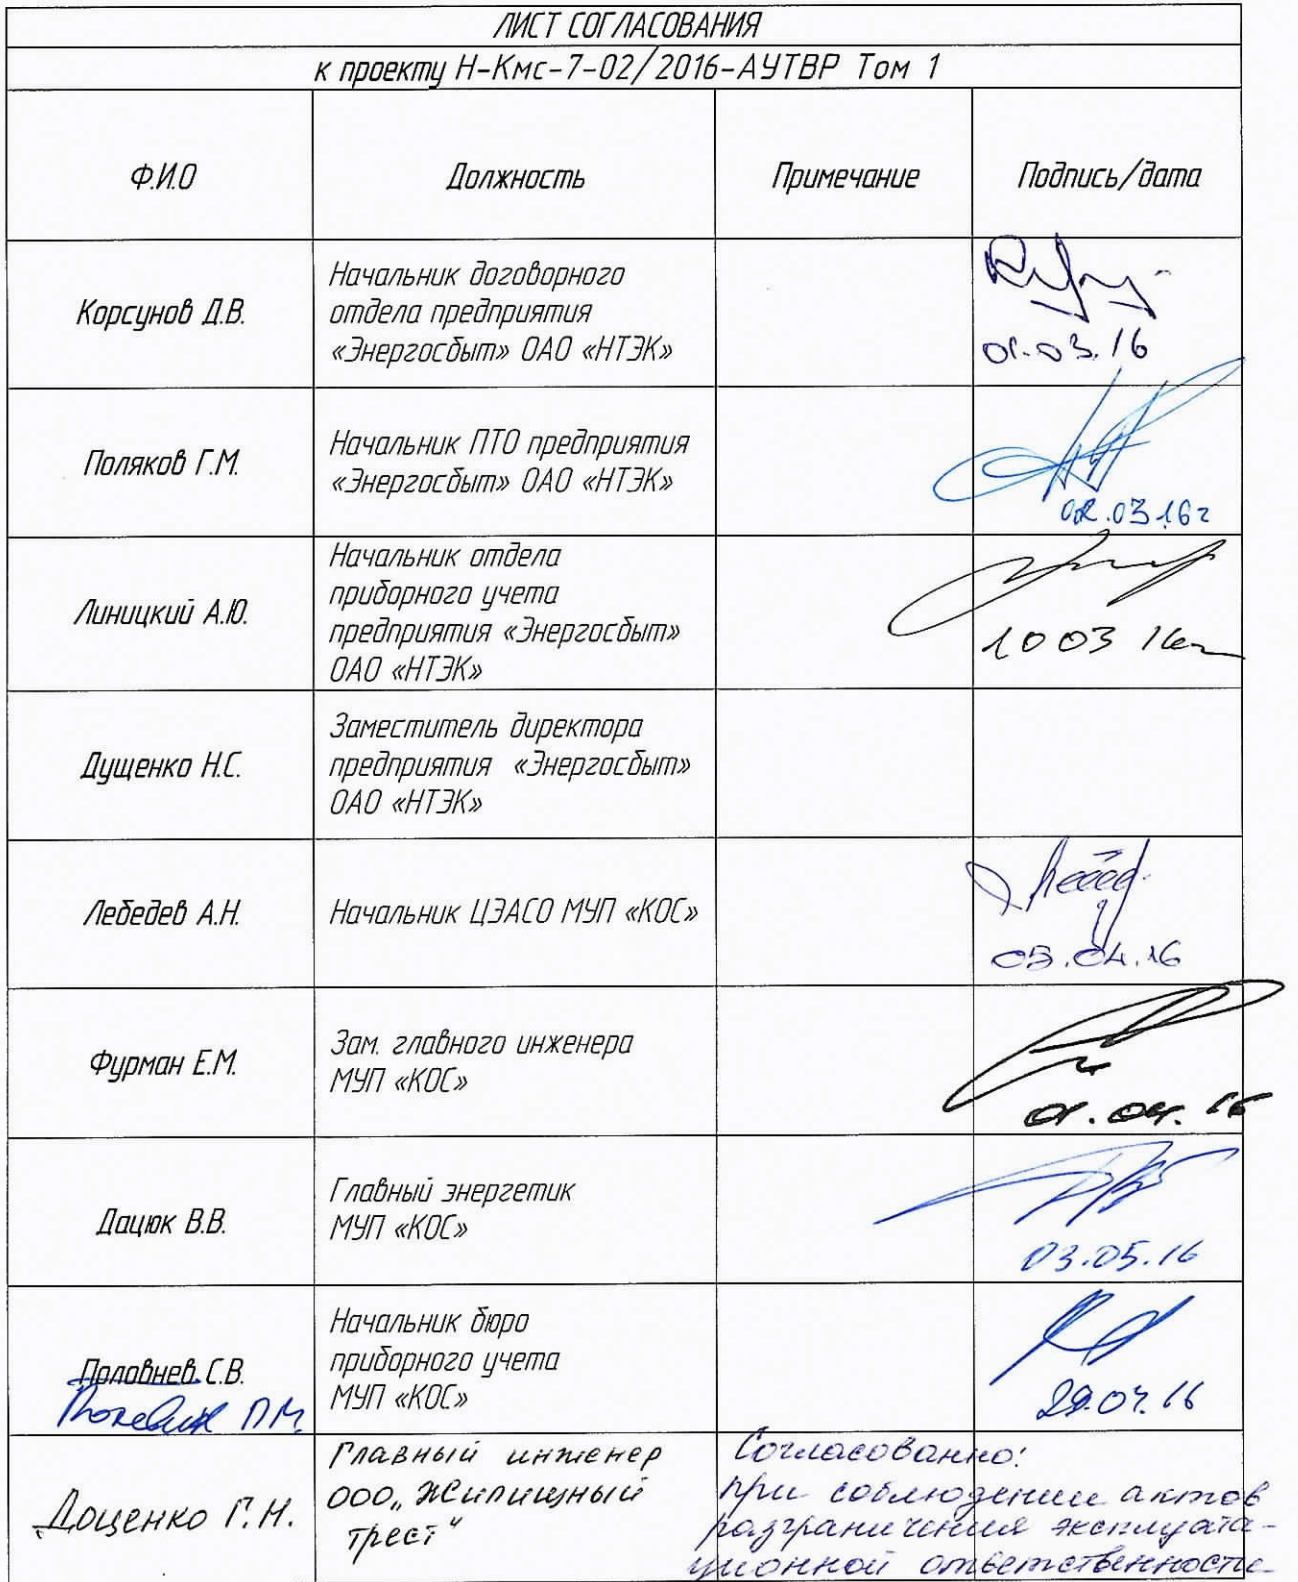 ЛИСТ СОГЛАСОВАНИЯ
к проекту Н-Кмс-7-02/2016-АУТВР Том 1
Ф.И.О
Должность
Примечание
Подпись/дата
Корсунов Д.В.
Начальник договорного
отдела предприятия
«Энергосбыт» ОАО «НТЭК»
01.03.16
Поляков Г.М.
Начальник ПТО предприятия
«Энергосбыт» ОАО «НТЭК»
02.03.16г
Линицкий А.Ю.
Начальник отдела
приборного учета
предприятия «Энергосбыт»
ОАО «НТЭК»
10 03 16г
Дущенко Н.С.
Заместитель директора
предприятия «Энергосбыт»
ОАО «НТЭК»
Лебедев А.Н.
Начальник ЦЭАСО МУП «КОС»
05.04.16
Фурман Е.М.
Зам. главного инженера
МУП «КОС»
01.04.16
Дацюк В.В.
Главный энергетик
МУП «КОС»
03.05.16
Половнев С.В.
П.М.
Начальник бюро
приборного учета
МУП «КОС»
29.04.16
Доценко Г.Н.
Главный инженер
ООО „Жилищный
трест“
Согласованно:
при соблюдении актов
разграничения эксплуата-
ционной ответственности